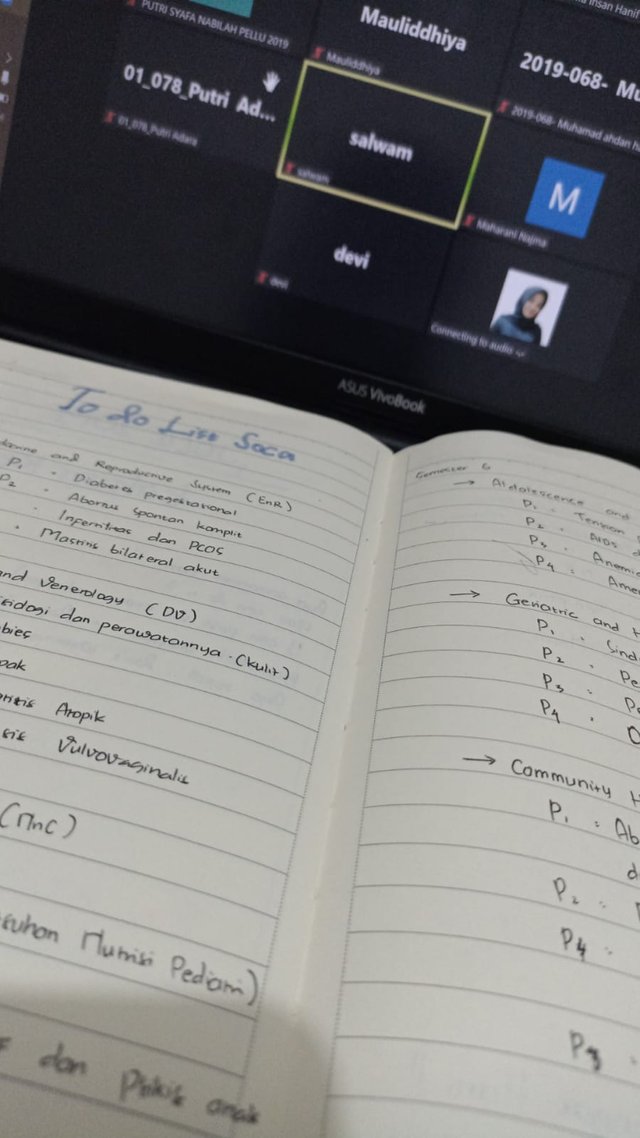 Insan Hanif
PUTRI SYAFA NABILAH PELLU 2019
Mauliddhiya
Mauliddhiya
2019-068- Mu
2019-068- Muhamad ahdan h
01_078_Putri Ad...
01_078_Putri Adara
salwam
salwam
M
Maharani Najma
devi
devi
Connecting to audio
ASUS VivoBook
To do List Soca
and Reproductive System (EnR)
P1 • Diabetes pregestational
P2 • Abortus spontan komplit
• Infertilitas dan PCOS
• Mastitis bilateral akut
and Venerology (DV)
dan perawatannya (kulit)
Atopik
Vulvovaginalis
(MnC)
Nutrisi Pediatri)
dan Psikis anak
Semester 6
→ Aldolescence and
P1 • Tension
P2 •
P3 • Anemi
P4 • Ame
→ Geriatric and H
P1 • Sind
P2 • Pe
P3 • Pe
P4 • O
→ Community H
P1 : Ab
d
P2 :
P4 :
P3 :